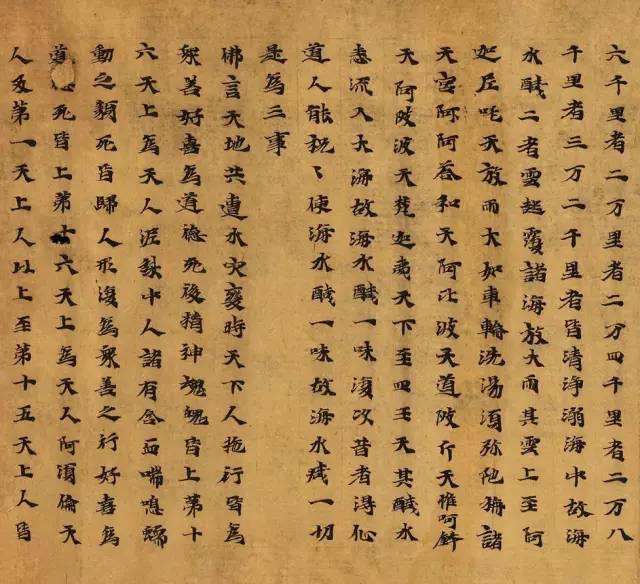 六千里者二万里者二万四千里者二万八
千里者三万二千里者皆清淨溺海中故海
水醎二者雲起覆諸海放大雨其雲上至阿
迦丘吒天放雨大如車輪洗湯須弥陁栴諸
天宫阿阿荅和天阿比波天道陂斤天惟呵鉢
天阿陂波天梵迦夷天下至四王天其醎水
悉流入大海故海水醎一味復次昔者得仙
道人能祝〻使海水醎一味故海水醎一切
是爲三事
佛言天地共遭水灾變時天下人施行皆爲
衆善好喜爲道德死後精神魂魄皆上第十
六天上爲天人泥犁中人諸有含血喘息蠕
動之類死皆歸人形復爲衆善之行好喜爲
道死皆上第十六天上爲天人阿須倫天
人及第一天上人以上至第十五天上人皆